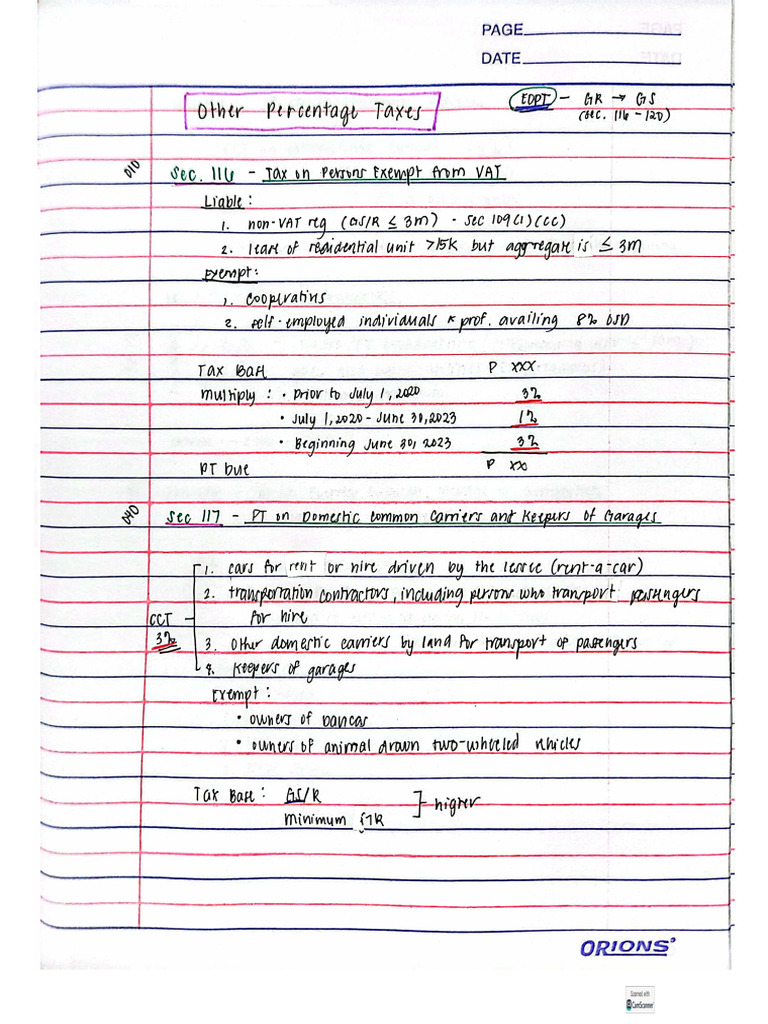 PAGE
DATE
Other Percentage Taxes
EOPT - GR → GS
(Sec. 116 - 120)
010 Sec. 116 - Tax on Persons Exempt from VAT
Liable:
1. non-VAT reg (GS/R ≤ 3m) - Sec 109(1)(CC)
2. lease of residential unit >15K but aggregate is ≤ 3m
Exempt:
1. Cooperatins
2. self-employed individuals & prof. availing 8% OSD
Tax Base P xxx
Multiply: • Prior to July 1, 2020 3%
• July 1, 2020 - June 30, 2023 1%
• Beginning June 30, 2023 3%
PT Due P xx
040 Sec 117 - PT on Domestic Common Carriers and Keepers of Garages
1. cars for rent or hire driven by the lessee (rent-a-car)
2. transportation contractors, including persons who transport passengers
CCT for hire
3% 3. Other domestic carriers by land for transport of passengers
4. Keepers of garages
Exempt:
• owners of bancas
• owners of animal drawn two-wheeled vehicles
Tax Base: GS/R
Minimum GR ] higher
ORIONS'
Scanned with
CamScanner